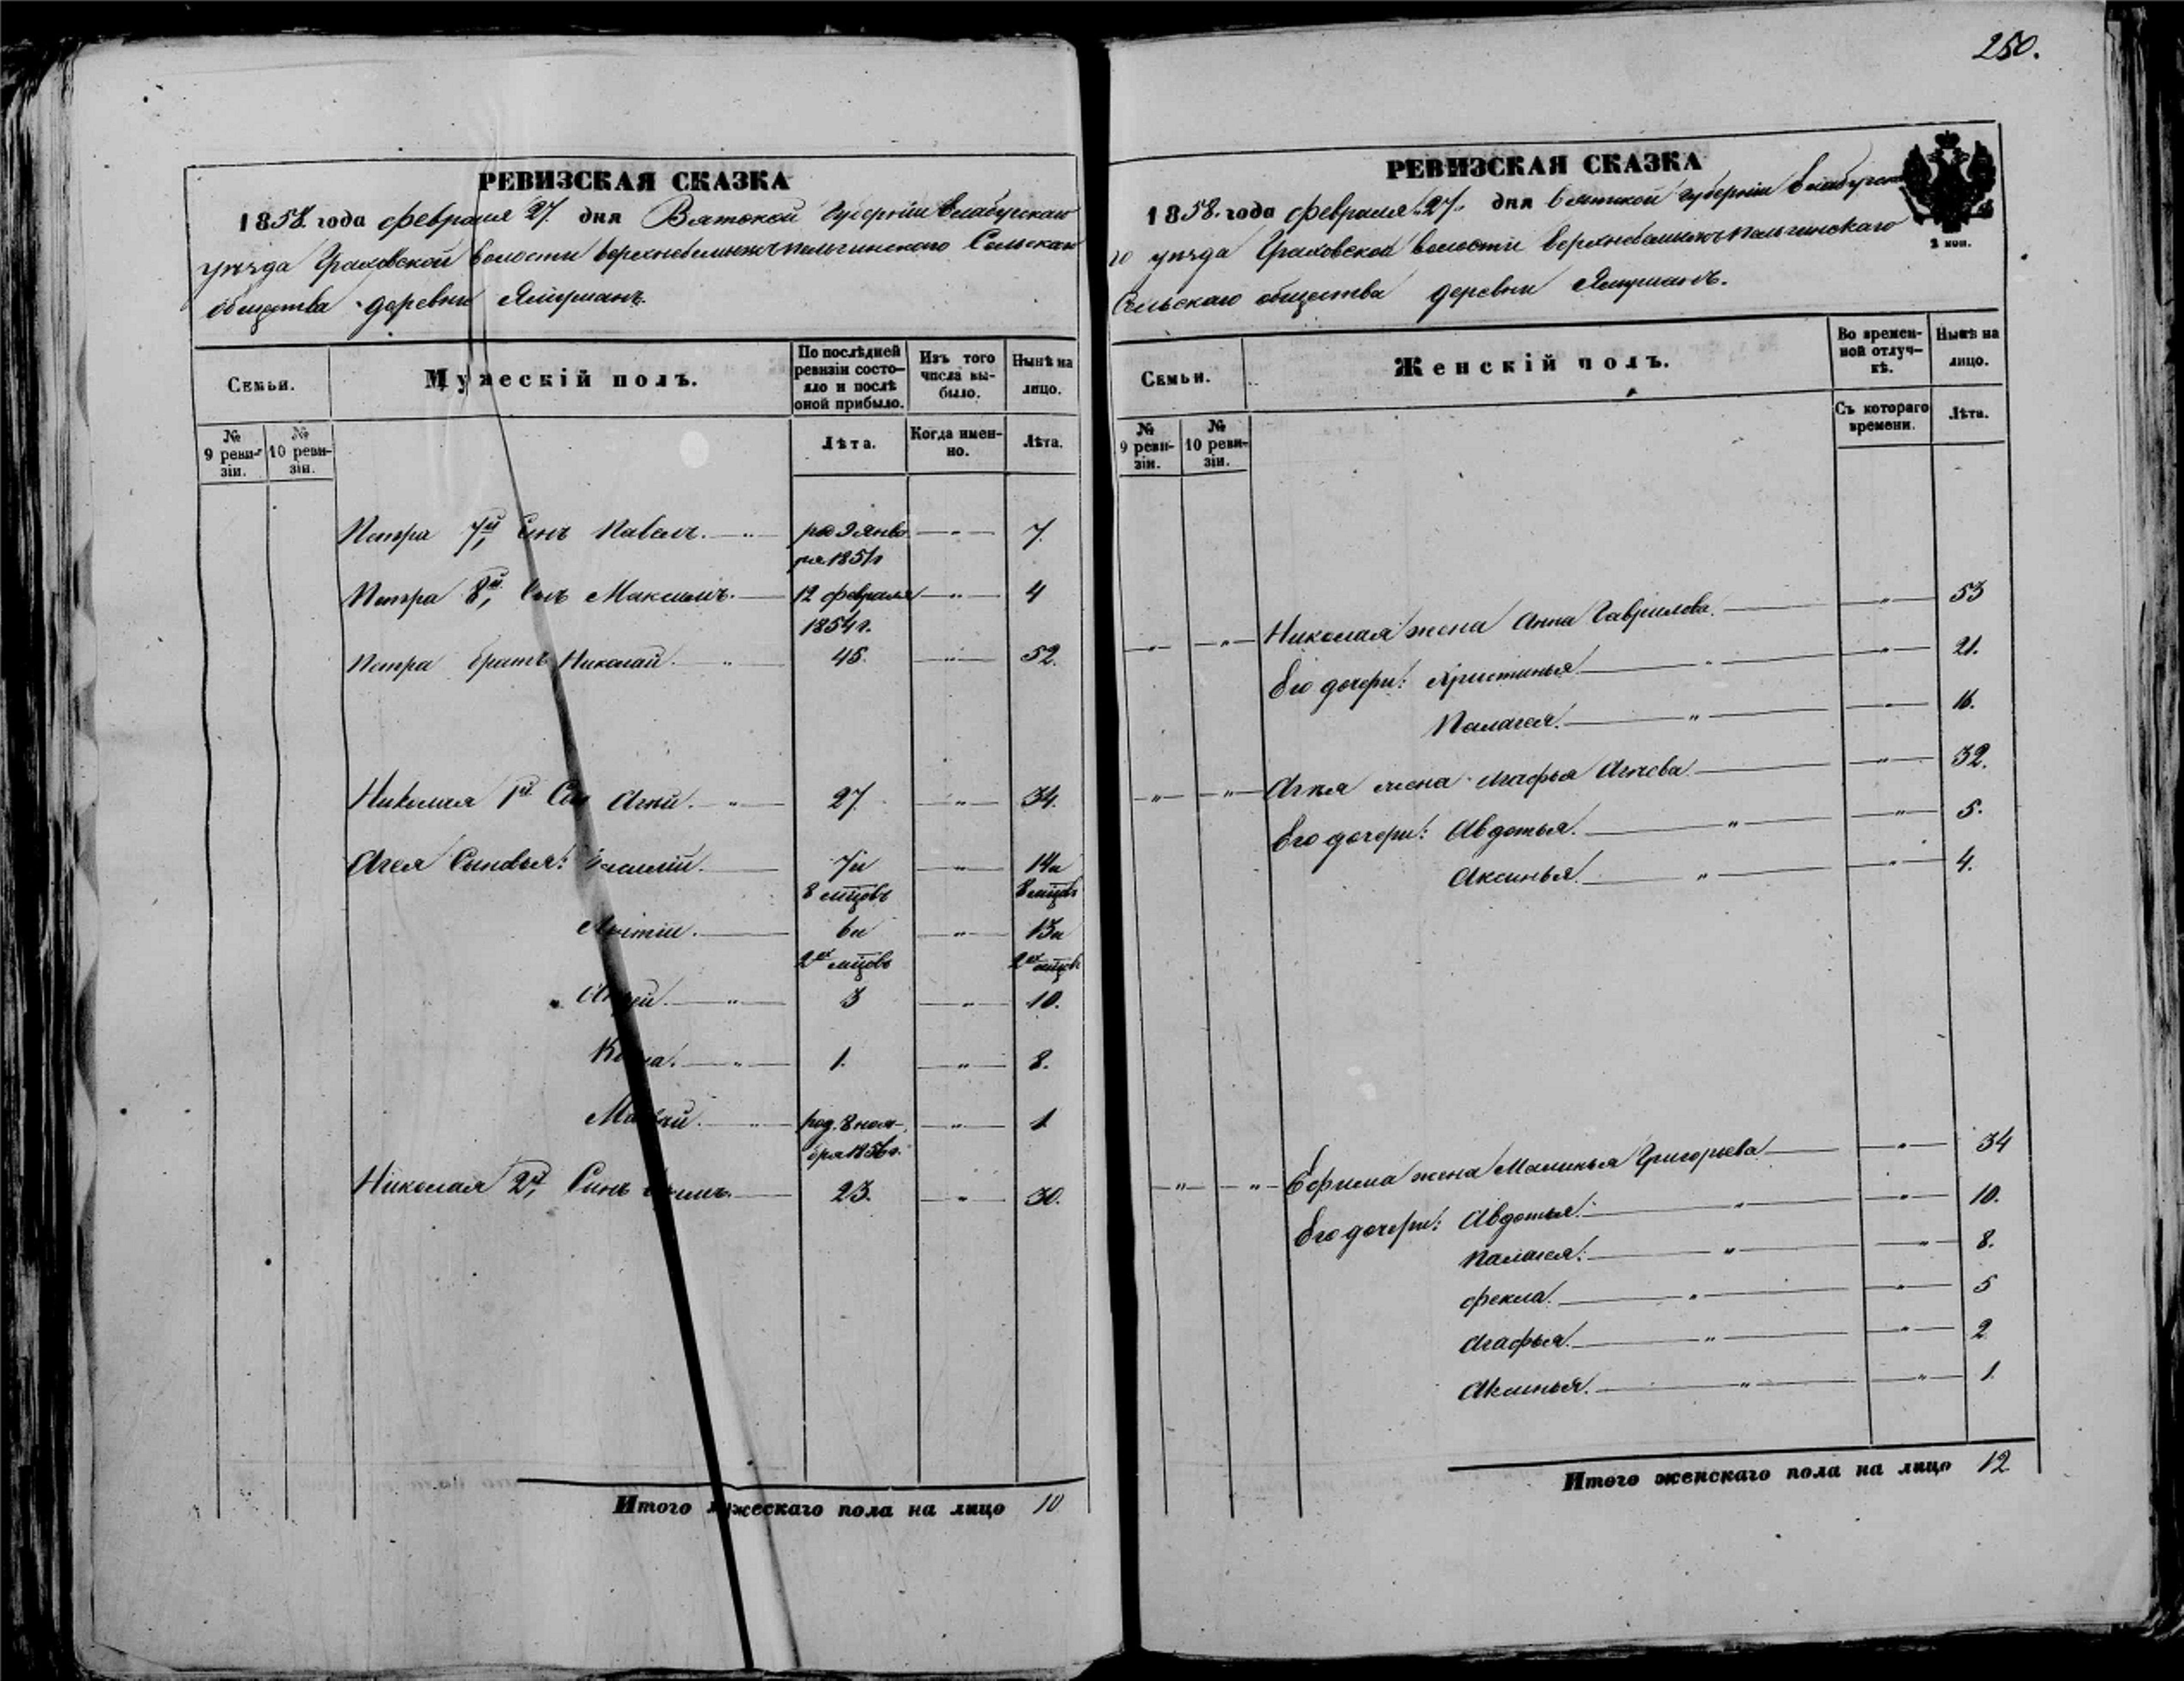 250.
РЕВИЗСКАЯ СКАЗКА
1858. года февраля 27. дня Вятской Губерніи Елабугскаго
уѣзда Граховской волости Сельскаго
общества деревни
Семьи.
Мужескій полъ.
По послѣдней ревизіи состояло и послѣ оной прибыло.
Изъ того числа выбыло.
Нынѣ на лицо.
№ 9 ревизіи.
№ 10 ревизіи.
Лѣта.
Когда именно.
Лѣта.
Петра 7й, Сынъ Павелъ. — " — род 9 янва — " — 7.
ря 1851г
Петра 8й, Сынъ Максимъ. — 12 февраля — " — 4
1854г.
Петра братъ Николай. — " 45. — " — 52.
Николая 1й Сын Агей. — " — 27. — " — 34.
Агея Сыновья: Василій. — 7и — " — 14и
8 мцовъ 8 мцовъ
6и — " — 13и
2ух мцовъ 2ух мцовъ
— " — 3 — " — 10.
— " — 1. — " — 8.
Матвей. — " род. 8 ноя- — " — 1
бря 1856г.
Николая 2й, Сынъ — 23. — " — 30.
Итого мужескаго пола на лицо 10
РЕВИЗСКАЯ СКАЗКА
1858. года февраля 27. дня Вятской Губерніи Елабугска
го уѣзда Граховской волости
Сельскаго общества деревни
2 коп.
Семьи.
Женскій полъ.
Во временной отлучкѣ.
Нынѣ на лицо.
№ 9 ревизіи.
№ 10 ревизіи.
Съ котораго времени.
Лѣта.
— " — — " — Николая жена Анна Гаврилова. — — " — 53
Его дочери: Христинья — " — — " — 21.
Палагея. — " — — " — 16.
— " — — " — Агея жена Агафья Агеева. — — " — 32.
Его дочери: Авдотья. — " — — " — 5.
Аксинья. — " — — " — 4.
— " — — " — Ефима жена Маминья Григорьева — — " — 34
Его дочери: Авдотья. — " — — " — 10.
Палагея. — " — — " — 8.
Фекла. — " — — " — 5
Агафья. — " — — " — 2
Аксинья. — " — — " — 1.
Итого женскаго пола на лицо 12